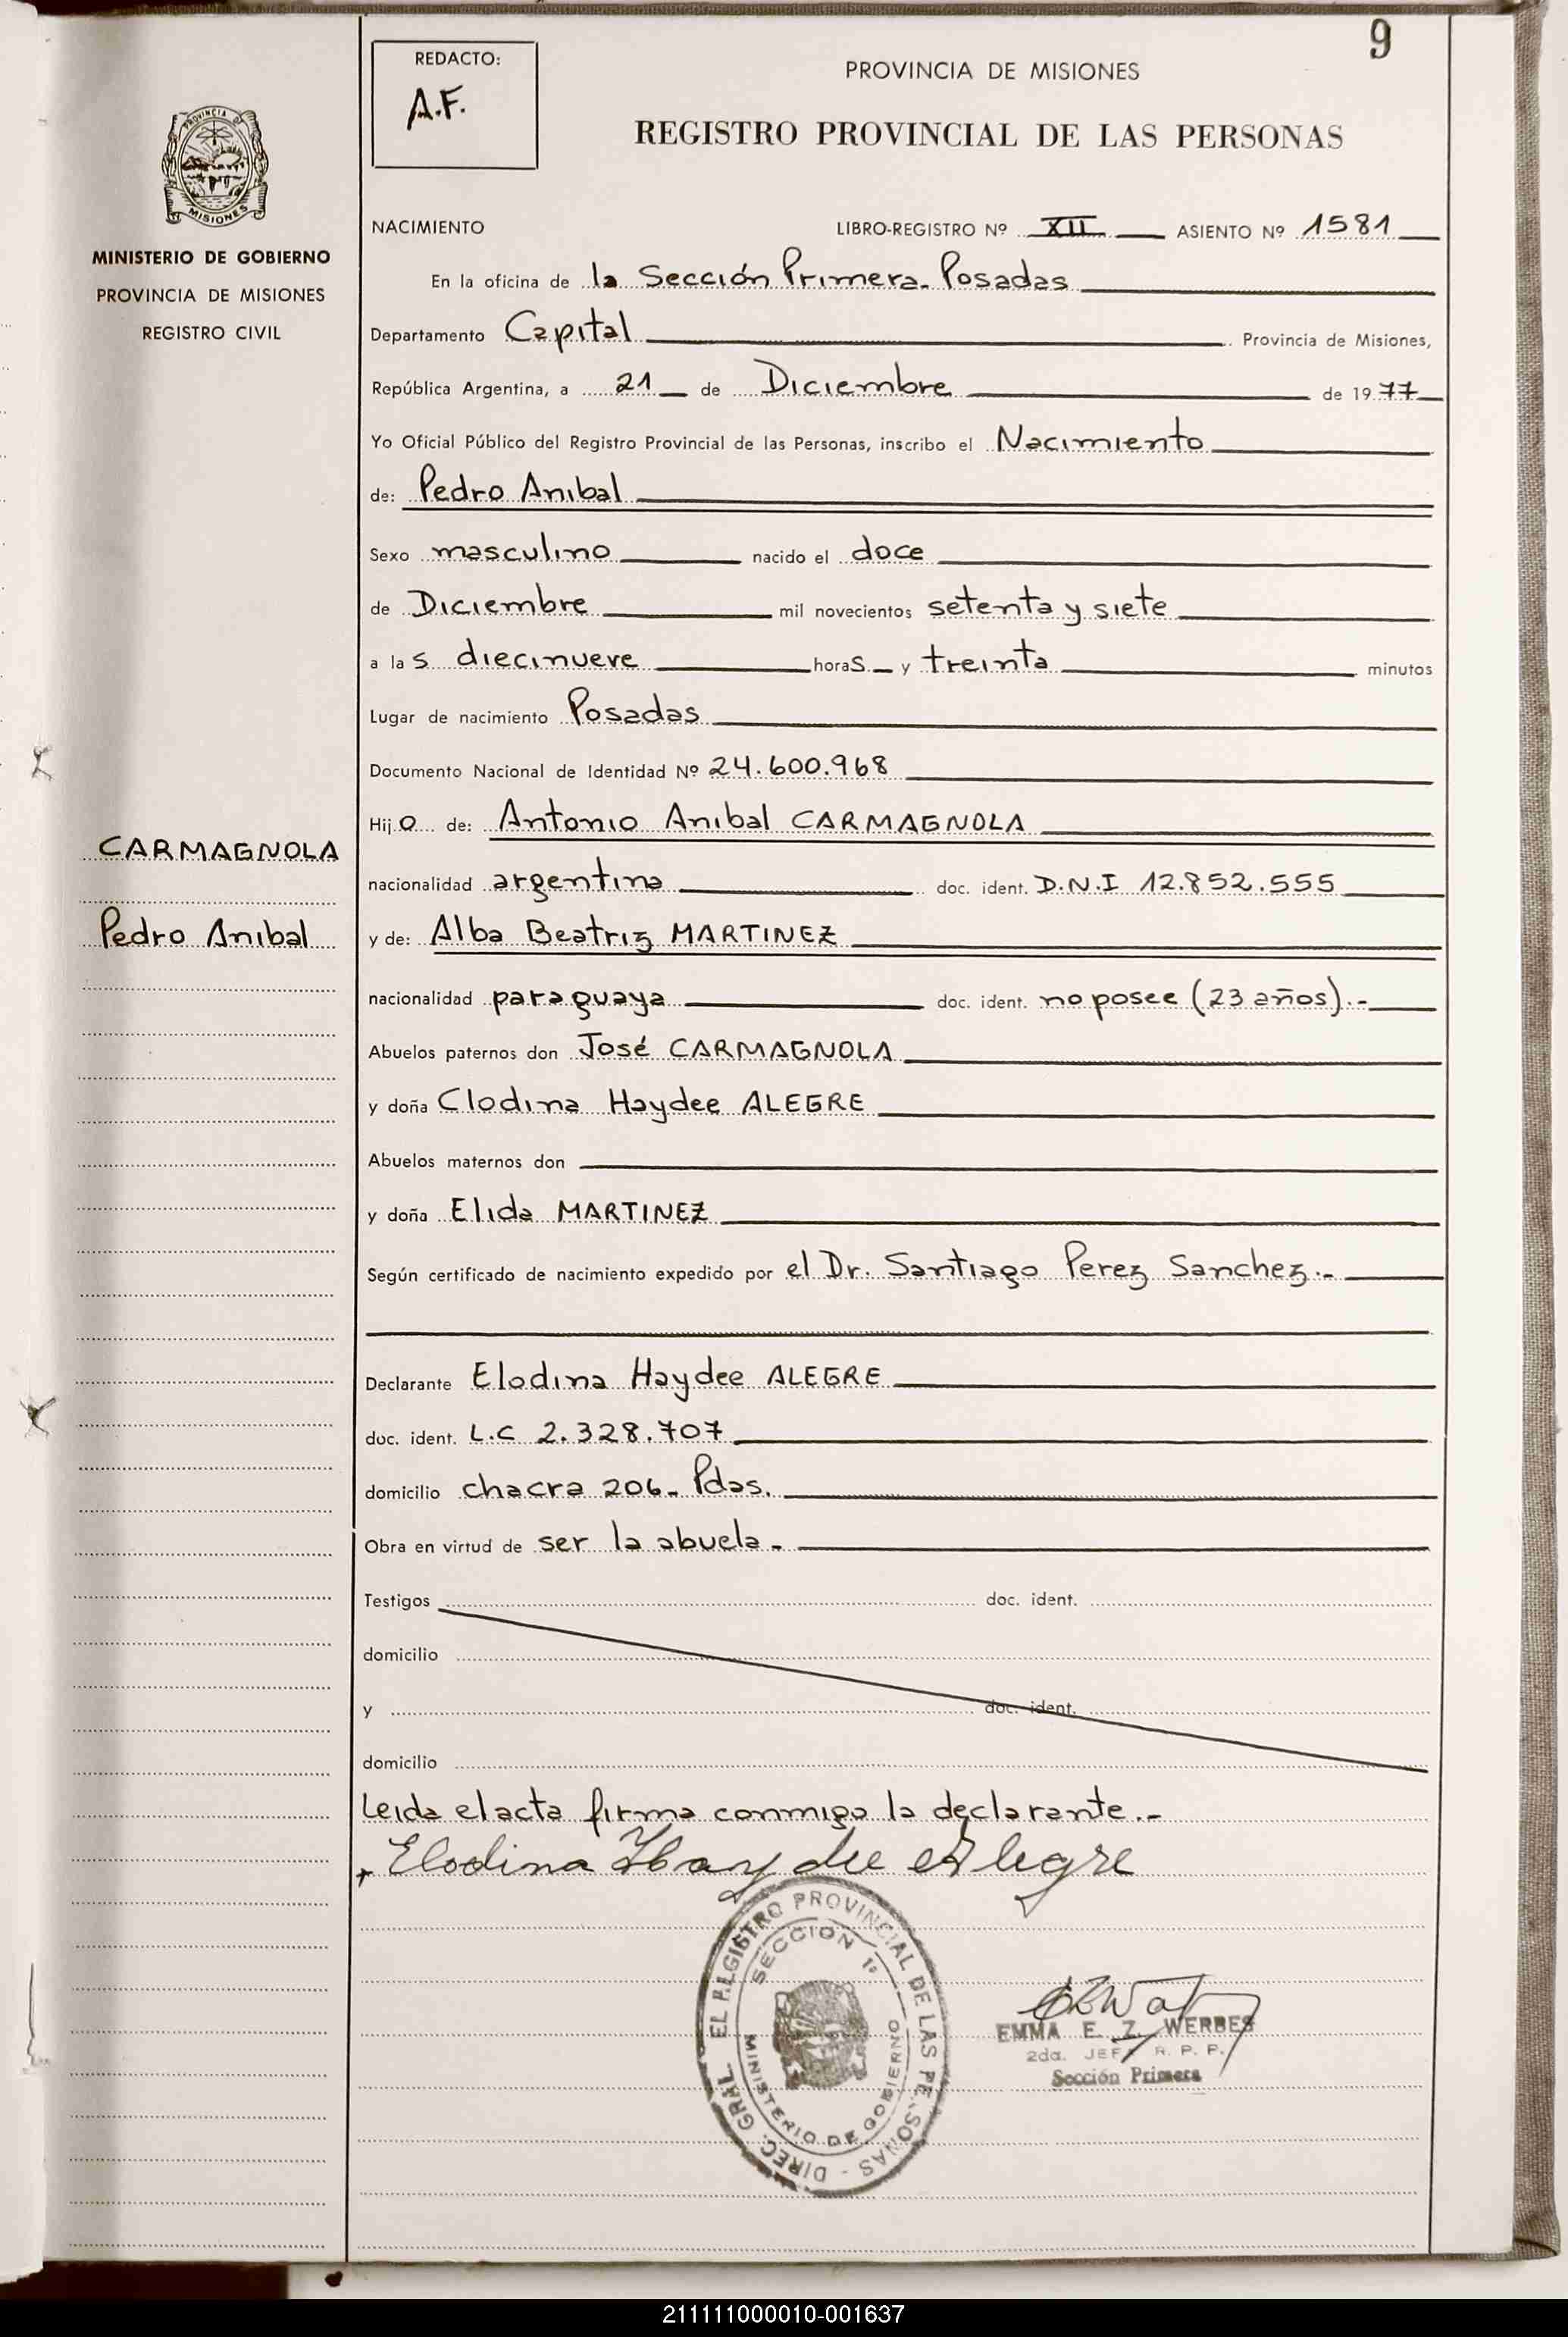 9
REDACTO:
A.F.
PROVINCIA DE MISIONES
REGISTRO PROVINCIAL DE LAS PERSONAS
PROVINCIA DE
MISIONES
MINISTERIO DE GOBIERNO
PROVINCIA DE MISIONES
REGISTRO CIVIL
NACIMIENTO LIBRO-REGISTRO Nº XII ASIENTO Nº 1581
En la oficina de la Sección Primera. Posadas
Departamento Capital Provincia de Misiones,
República Argentina, a 21 de Diciembre de 1977
Yo Oficial Público del Registro Provincial de las Personas, inscribo el Nacimiento
de: Pedro Anibal
Sexo masculino nacido el doce
de Diciembre mil novecientos setenta y siete
a las diecinueve horas y treinta minutos
Lugar de nacimiento Posadas
Documento Nacional de Identidad Nº 24.600.968
Hijo de: Antonio Anibal CARMAGNOLA
CARMAGNOLA
nacionalidad argentina doc. ident. D.N.I 12.852.555
Pedro Anibal
y de: Alba Beatriz MARTINEZ
nacionalidad paraguaya doc. ident. no posee (23 años).-
Abuelos paternos don José CARMAGNOLA
y doña Clodina Haydee ALEGRE
Abuelos maternos don
y doña Elida MARTINEZ
Según certificado de nacimiento expedido por el Dr. Santiago Perez Sanchez.-
Declarante Elodina Haydee ALEGRE
doc. ident. L.C 2.328.707
domicilio chacra 206. Pdas.
Obra en virtud de ser la abuela.
Testigos doc. ident.
domicilio
y doc. ident.
domicilio
Leida el acta firma conmigo la declarante.-
Elodina Haydee Alegre
DIREC. GRAL. EL REGISTRO PROVINCIAL DE LAS PERSONAS -
SECCION 1º
MINISTERIO DE GOBIERNO
EMMA E. Z. WERBES
2da. JEFA R. P. P.
Sección Primera
211111000010-001637